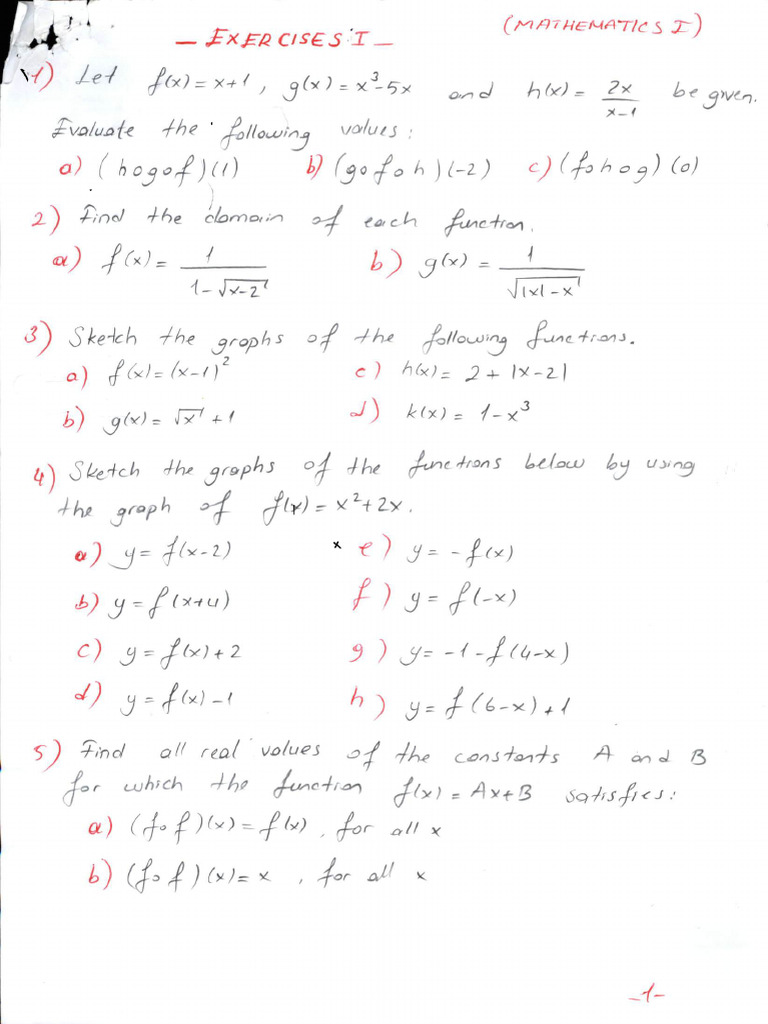 (MATHEMATICS I)
- EXERCISES I -
1) Let f(x) = x+1, g(x) = x³-5x and h(x) = 2x/(x-1) be given.
Evaluate the following values:
a) (hogof)(1) b) (gofoh)(-2) c) (fohog)(0)
2) Find the domain of each function.
a) f(x) = 1/(1-√(x-2)) b) g(x) = 1/√(|x|-x)
3) Sketch the graphs of the following functions.
a) f(x) = (x-1)² c) h(x) = 2+|x-2|
b) g(x) = √x + 1 d) k(x) = 1-x³
4) Sketch the graphs of the functions below by using
the graph of f(x) = x²+2x.
a) y = f(x-2) x e) y = -f(x)
b) y = f(x+4) f) y = f(-x)
c) y = f(x)+2 g) y = -1-f(4-x)
d) y = f(x)-1 h) y = f(6-x)+1
5) Find all real values of the constants A and B
for which the function f(x) = Ax+B satisfies:
a) (fof)(x) = f(x), for all x
b) (fof)(x) = x, for all x
-1-